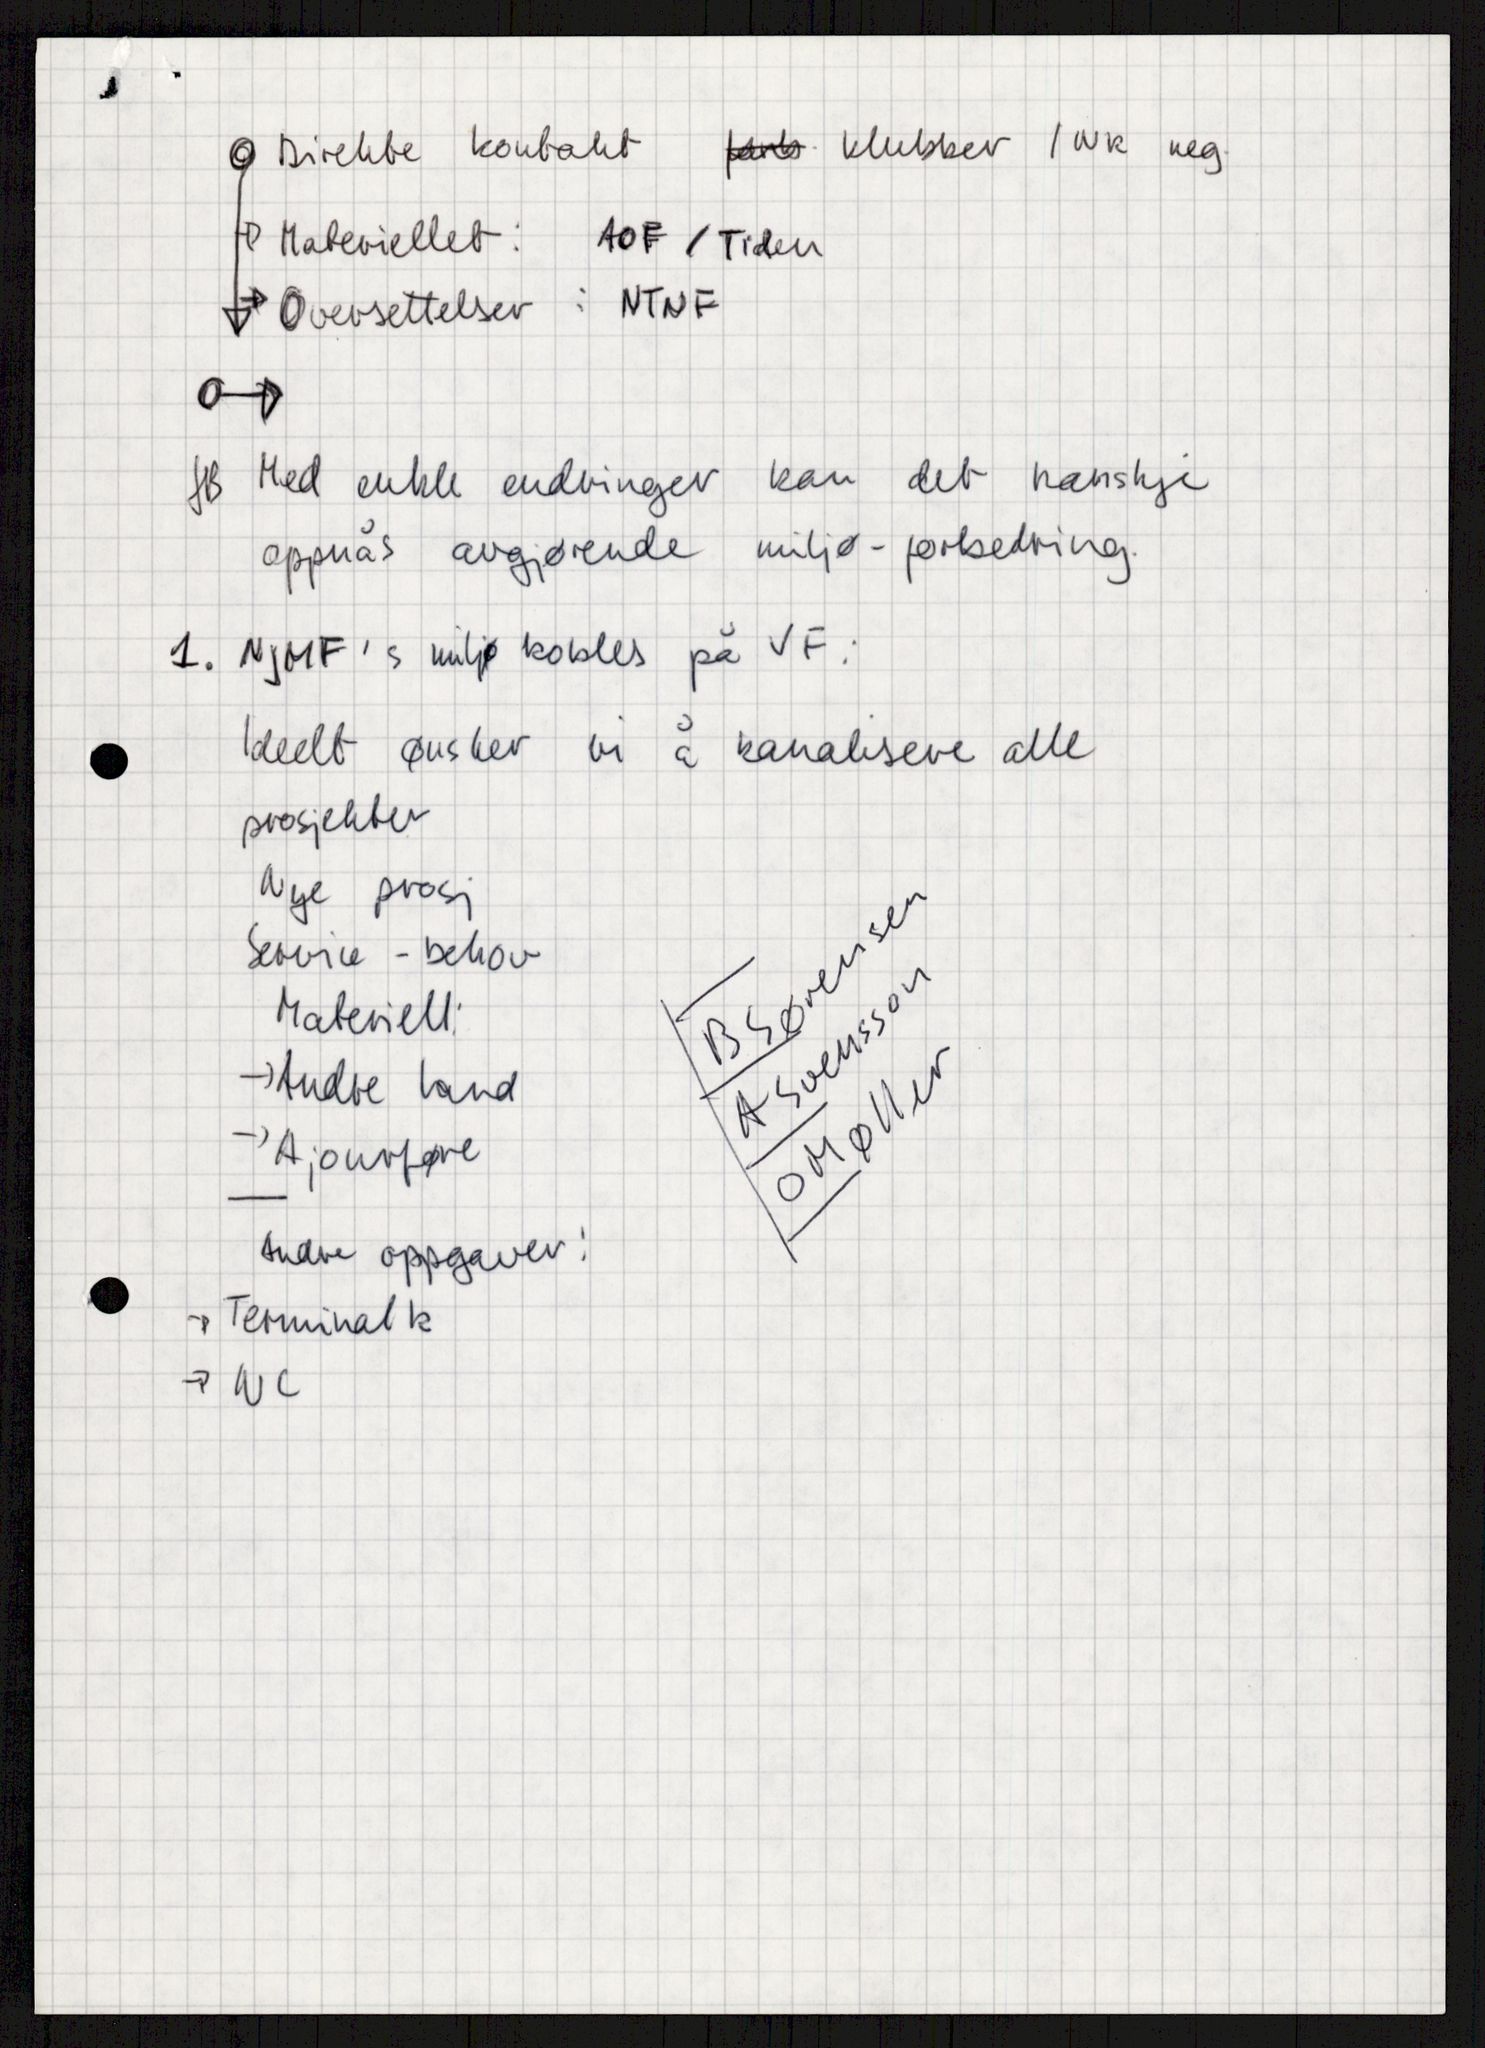 Direkte kontakt klubber / NR neg.
→ Materiellet: AOF / Tiden
→ Oversettelser : NTNF
HB Med enkle endringer kan det kanskje
oppnås avgjørende miljø-forbedring.
1. NJMF's miljø kobles på VF:
Ideelt ønsker vi å kanalisere alle
prosjekter
Nye prosj
Service - behov
Materiell:
→ Andre land
→ Ajourføre
Andre oppgaver:
→ Terminal k
→ NC
B Sørensen
A Svensson
O Møller